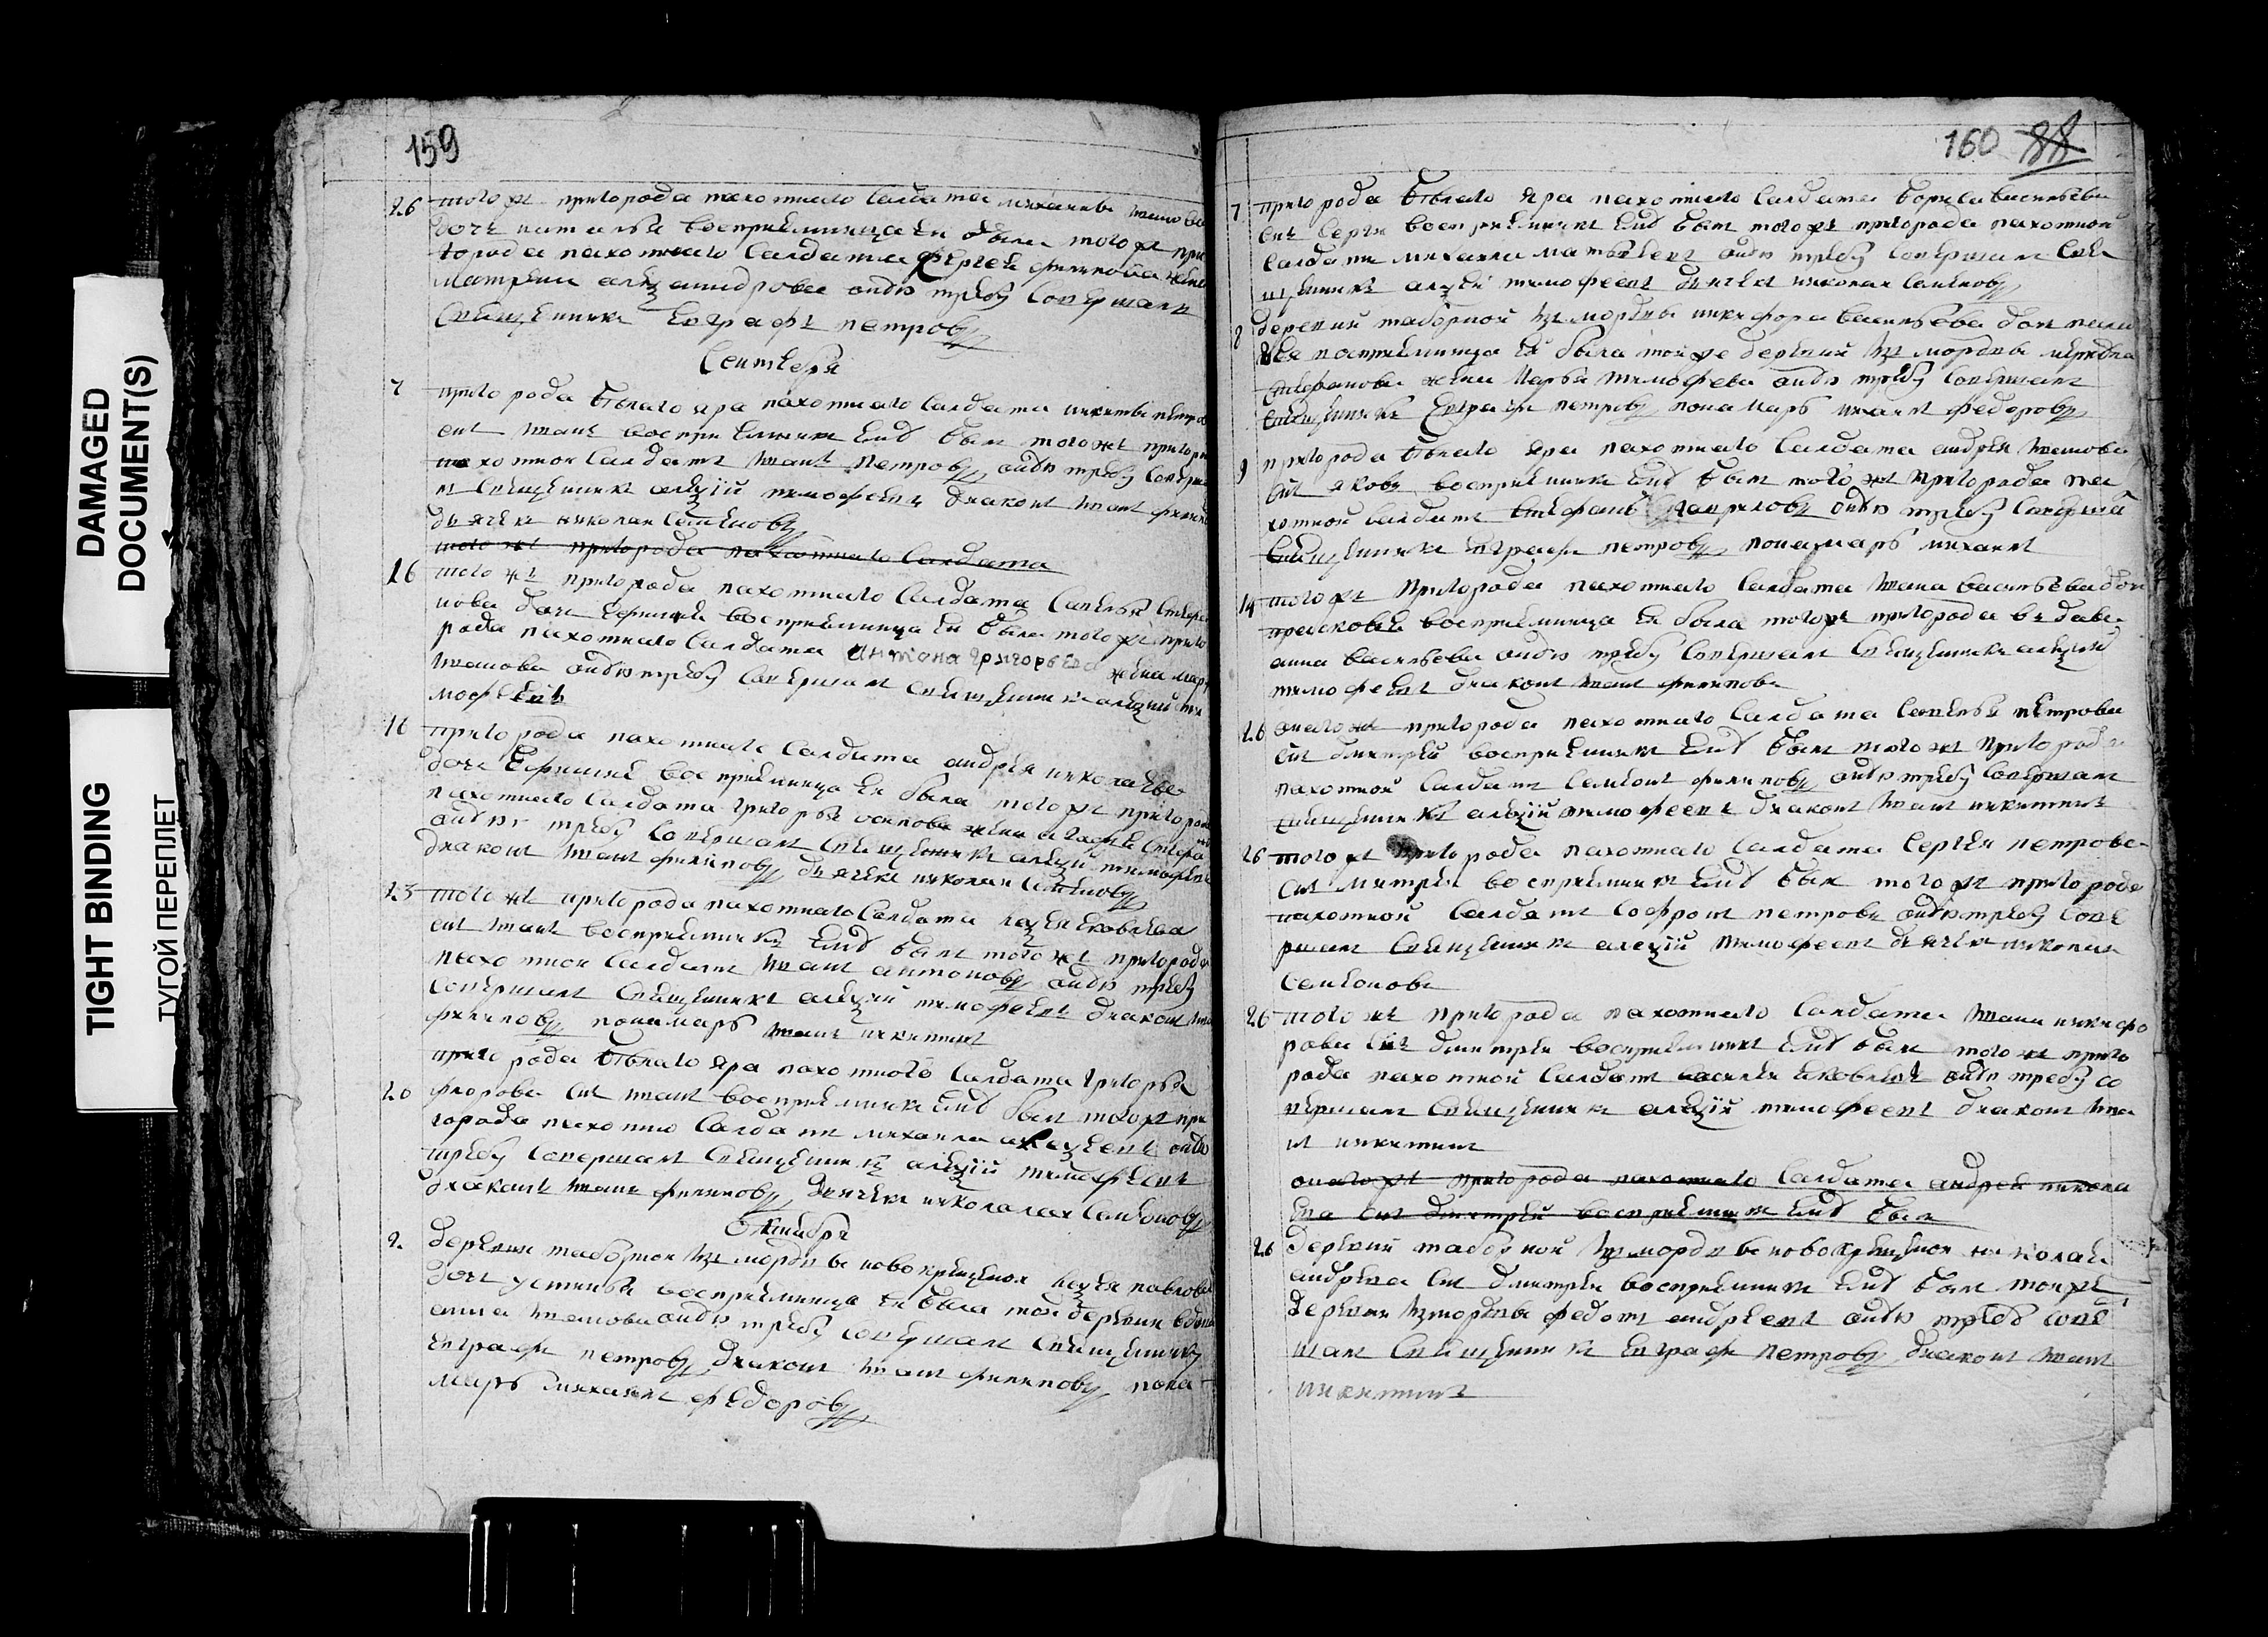 DAMAGED
DOCUMENT(S)
TIGHT BINDING
ТУГОЙ ПЕРЕПЛЕТ
159
26 того же пригорода пахотнаго салдата михаила иванова
дочь наталья восприемница ея была того же при
города пахотнаго салдата сергея филипова жена
матрена александрова оную требу совершалъ
священникъ евграфъ петровъ
сентебря
7 пригорода белаго яра пахотнаго салдата никиты петрова
сынъ иванъ восприемникъ ему былъ того же пригорода
пахотной салдатъ иванъ петровъ оную требу соверша
лъ священникъ алексий тимофеевъ диаконъ иванъ филипо
дьячекъ николай семеновъ
того же пригорода пахотнаго салдата
16 того же пригорода пахотнаго салдата савелья степа
нова дочь ефимия восприемница ея была того же приго
рода пахотнаго салдата антона григорьева жена мар
иванова оную требу совершалъ священникъ алексий ти
мофеевъ
16 пригорода пахотнаго салдата андрея николаева
дочь ефимия восприемница ея была того же пригорода
пахотнаго салдата григорья осипова жена агафья степа
оную требу совершалъ священникъ алексий тимофеевъ
диаконъ иванъ филиповъ дьячекъ николай семеновъ
23 того же пригорода пахотнаго салдата
сынъ иванъ восприемникъ ему былъ того же пригорода
пахотной салдатъ иванъ антоновъ оную требу
совершалъ священникъ алексий тимофеевъ диаконъ ива
филиповъ понамарь иванъ никитинъ
пригорода белаго яра пахотного салдата григорья
20 сынъ иванъ восприемникъ ему былъ того же при
города пахотно салдатъ михаила алексеевъ оную
требу совершалъ священникъ алексий тимофеевъ
диаконъ иванъ филиповъ дьячекъ николай семеновъ
октября
2 деревни таборной из мордвы новокрещеной павлова
дочь устинья восприемница ея была той деревни вдова
анна иванова оную требу совершалъ священникъ
евграфъ петровъ диаконъ иванъ филиповъ пона
марь михаилъ федоровъ
160 88
7 пригорода белаго яра пахотнаго салдата бориса васильева
сынъ сергей восприемникъ ему былъ того же пригорода пахотной
салдатъ михаила матвеевъ оную требу совершалъ свя
щенникъ алексей тимофеевъ дьячекъ николай семеновъ
8 деревни таборной из мордвы никифора васильева дочь пела
гея восприемница ея была той же деревни из мордвы
степанова жена марья тимофеева оную требу совершалъ
священникъ евграфъ петровъ понамарь михаилъ федоровъ
9 пригорода белаго яра пахотнаго салдата андрея иванова
сынъ яковъ восприемникъ ему былъ того же пригорода па
хотной салдатъ стефанъ гавриловъ оную требу соверша
священникъ евграфъ петровъ понамарь михаилъ
14 того же пригорода пахотнаго салдата ивана васильева доч
прасковья восприемница ея была того же пригорода вдова
анна васильева оную требу совершалъ священникъ алексий
тимофеевъ диаконъ иванъ филиповъ
26 онаго же пригорода пахотнаго салдата савелья петрова
сынъ димитрей восприемникъ ему былъ того же пригорода
пахотной салдатъ семионъ филиповъ оную требу совершалъ
священникъ алексий тимофеевъ диаконъ иванъ никитинъ
26 того же пригорода пахотнаго салдата сергея петрова
сынъ митрей восприемникъ ему былъ того же пригорода
пахотной салдатъ софронъ петровъ оную требу сове
ршалъ священникъ алексий тимофеевъ дьячекъ николай
семионовъ
26 того же пригорода пахотнаго салдата ивана никифо
рова сынъ димитрей восприемникъ ему былъ того же приго
рода пахотной салдатъ василей яковлевъ оную требу со
вершалъ священникъ алексий тимофеевъ диаконъ ива
нъ никитинъ
онаго же пригорода пахотнаго салдата андрея никола
ева сынъ димитрей восприемникъ ему былъ
26 деревни таборной из мордвы новокрещеной николая
андреева сынъ димитрей восприемникъ ему былъ той же
деревни из мордвы федотъ андреевъ оную требу совер
шалъ священникъ евграфъ петровъ диаконъ иванъ
никитинъ